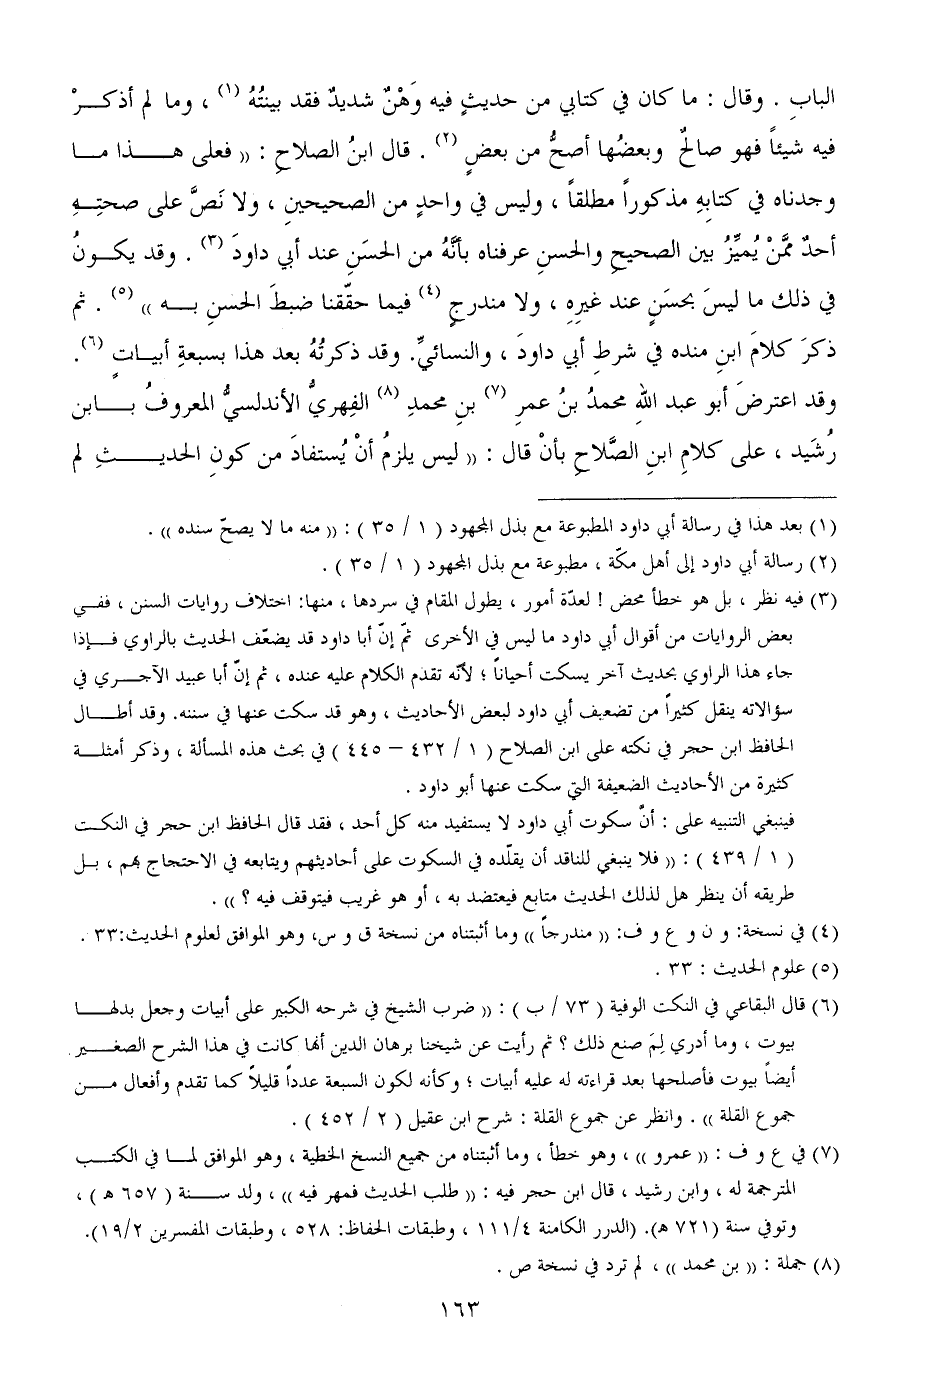 البابِ . وقال : ما كان في كتابي من حديثٍ فيه وَهْنٌ شديدٌ فقد بينتُهُ (١) ، وما لم أذكـــرْ
فيه شيئاً فهو صالحٌ وبعضُها أصحُّ من بعضٍ (٢) . قال ابنُ الصلاحِ : (( فعلى هـــــذا مـــا
وجدناه في كتابِهِ مذكوراً مطلقاً ، وليس في واحدٍ من الصحيحينِ ، ولا نَصَّ على صحتِــهِ
أحدٌ ممَّنْ يُميِّزُ بين الصحيحِ والحسنِ عرفناه بأنَّهُ من الحسَنِ عند أبي داودَ (٣) . وقد يكــونُ
في ذلك ما ليسَ بحسَنٍ عند غيرِهِ ، ولا مندرجٍ (٤) فيما حقّقنا ضبطَ الحسنِ بـــه )) (٥) . ثم
ذكرَ كلامَ ابنِ منده في شرطِ أبي داودَ ، والنسائيِّ. وقد ذكرتُهُ بعد هذا بسبعةِ أبيــاتٍ (٦).
وقد اعترضَ أبو عبد اللهِ محمدُ بنُ عمرِ (٧) بنِ محمدِ (٨) الفِهريُّ الأندلسيُّ المعروفُ بـــابن
رُشَيد ، على كلامِ ابنِ الصَّلاحِ بأنْ قال : (( ليس يلزمُ أنْ يُستفادَ من كونِ الحديـــــثِ لم
(١) بعد هذا في رسالة أبي داود المطبوعة مع بذل المجهود ( ١ / ٣٥ ) : (( منه ما لا يصحّ سنده )) .
(٢) رسالة أبي داود إلى أهل مكّة ، مطبوعة مع بذل المجهود ( ١ / ٣٥ ) .
(٣) فيه نظر ، بل هو خطأ محض ! لعدّة أمور ، يطول المقام في سردها ، منها: اختلاف روايات السنن ، ففـي
بعض الروايات من أقوال أبي داود ما ليس في الأخرى ثمّ إنّ أبا داود قد يضعّف الحديث بالراوي فـــإذا
جاء هذا الراوي بحديث آخر يسكت أحياناً ؛ لأنّه تقدم الكلام عليه عنده ، ثم إنّ أبا عبيد الآجــري في
سؤالاته ينقل كثيراً من تضعيف أبي داود لبعض الأحاديث ، وهو قد سكت عنها في سننه. وقد أطـــال
الحافظ ابن حجر في نكته على ابن الصلاح ( ١ / ٤٣٢ – ٤٤٥ ) في بحث هذه المسألة ، وذكر أمثلــة
كثيرة من الأحاديث الضعيفة التي سكت عنها أبو داود .
فينبغي التنبيه على : أنّ سكوت أبي داود لا يستفيد منه كل أحد ، فقد قال الحافظ ابن حجر في النكـت
( ١ / ٤٣٩ ) : (( فلا ينبغي للناقد أن يقلّده في السكوت على أحاديثهم ويتابعه في الاحتجاج بهم ، بــل
طريقه أن ينظر هل لذلك الحديث متابع فيعتضد به ، أو هو غريب فيتوقف فيه ؟ )) .
(٤) في نسخة: و ن و ع و ف: (( مندرجاً )) وما أثبتناه من نسخة ق و س، وهو الموافق لعلوم الحديث:٣٣ .
(٥) علوم الحديث : ٣٣ .
(٦) قال البقاعي في النكت الوفية ( ٧٣ / ب ) : (( ضرب الشيخ في شرحه الكبير على أبيات وجعل بدلهـــا
بيوت ، وما أدري لِمَ صنع ذلك ؟ ثم رأيت عن شيخنا برهان الدين أنها كانت في هذا الشرح الصغـــير
أيضاً بيوت فأصلحها بعد قراءته له عليه أبيات ؛ وكأنه لكون السبعة عدداً قليلاً كما تقدم وأفعال مـــن
جموع القلة )) . وانظر عن جموع القلة : شرح ابن عقيل ( ٢ / ٤٥٢ ) .
(٧) في ع و ف : (( عمرو )) ، وهو خطأ ، وما أثبتناه من جميع النسخ الخطية ، وهو الموافق لمــا في الكتـب
المترجمة له ، وابن رشيد ، قال ابن حجر فيه : (( طلب الحديث فمهر فيه )) ، ولد ســـنة ( ٦٥٧ ه ) ،
وتوفي سنة (٧٢١ ه). (الدرر الكامنة ١١١/٤ ، وطبقات الحفاظ: ٥٢٨ ، وطبقات المفسرين ١٩/٢).
(٨) جملة : (( بن محمد )) ، لم ترد في نسخة ص .
١٦٣